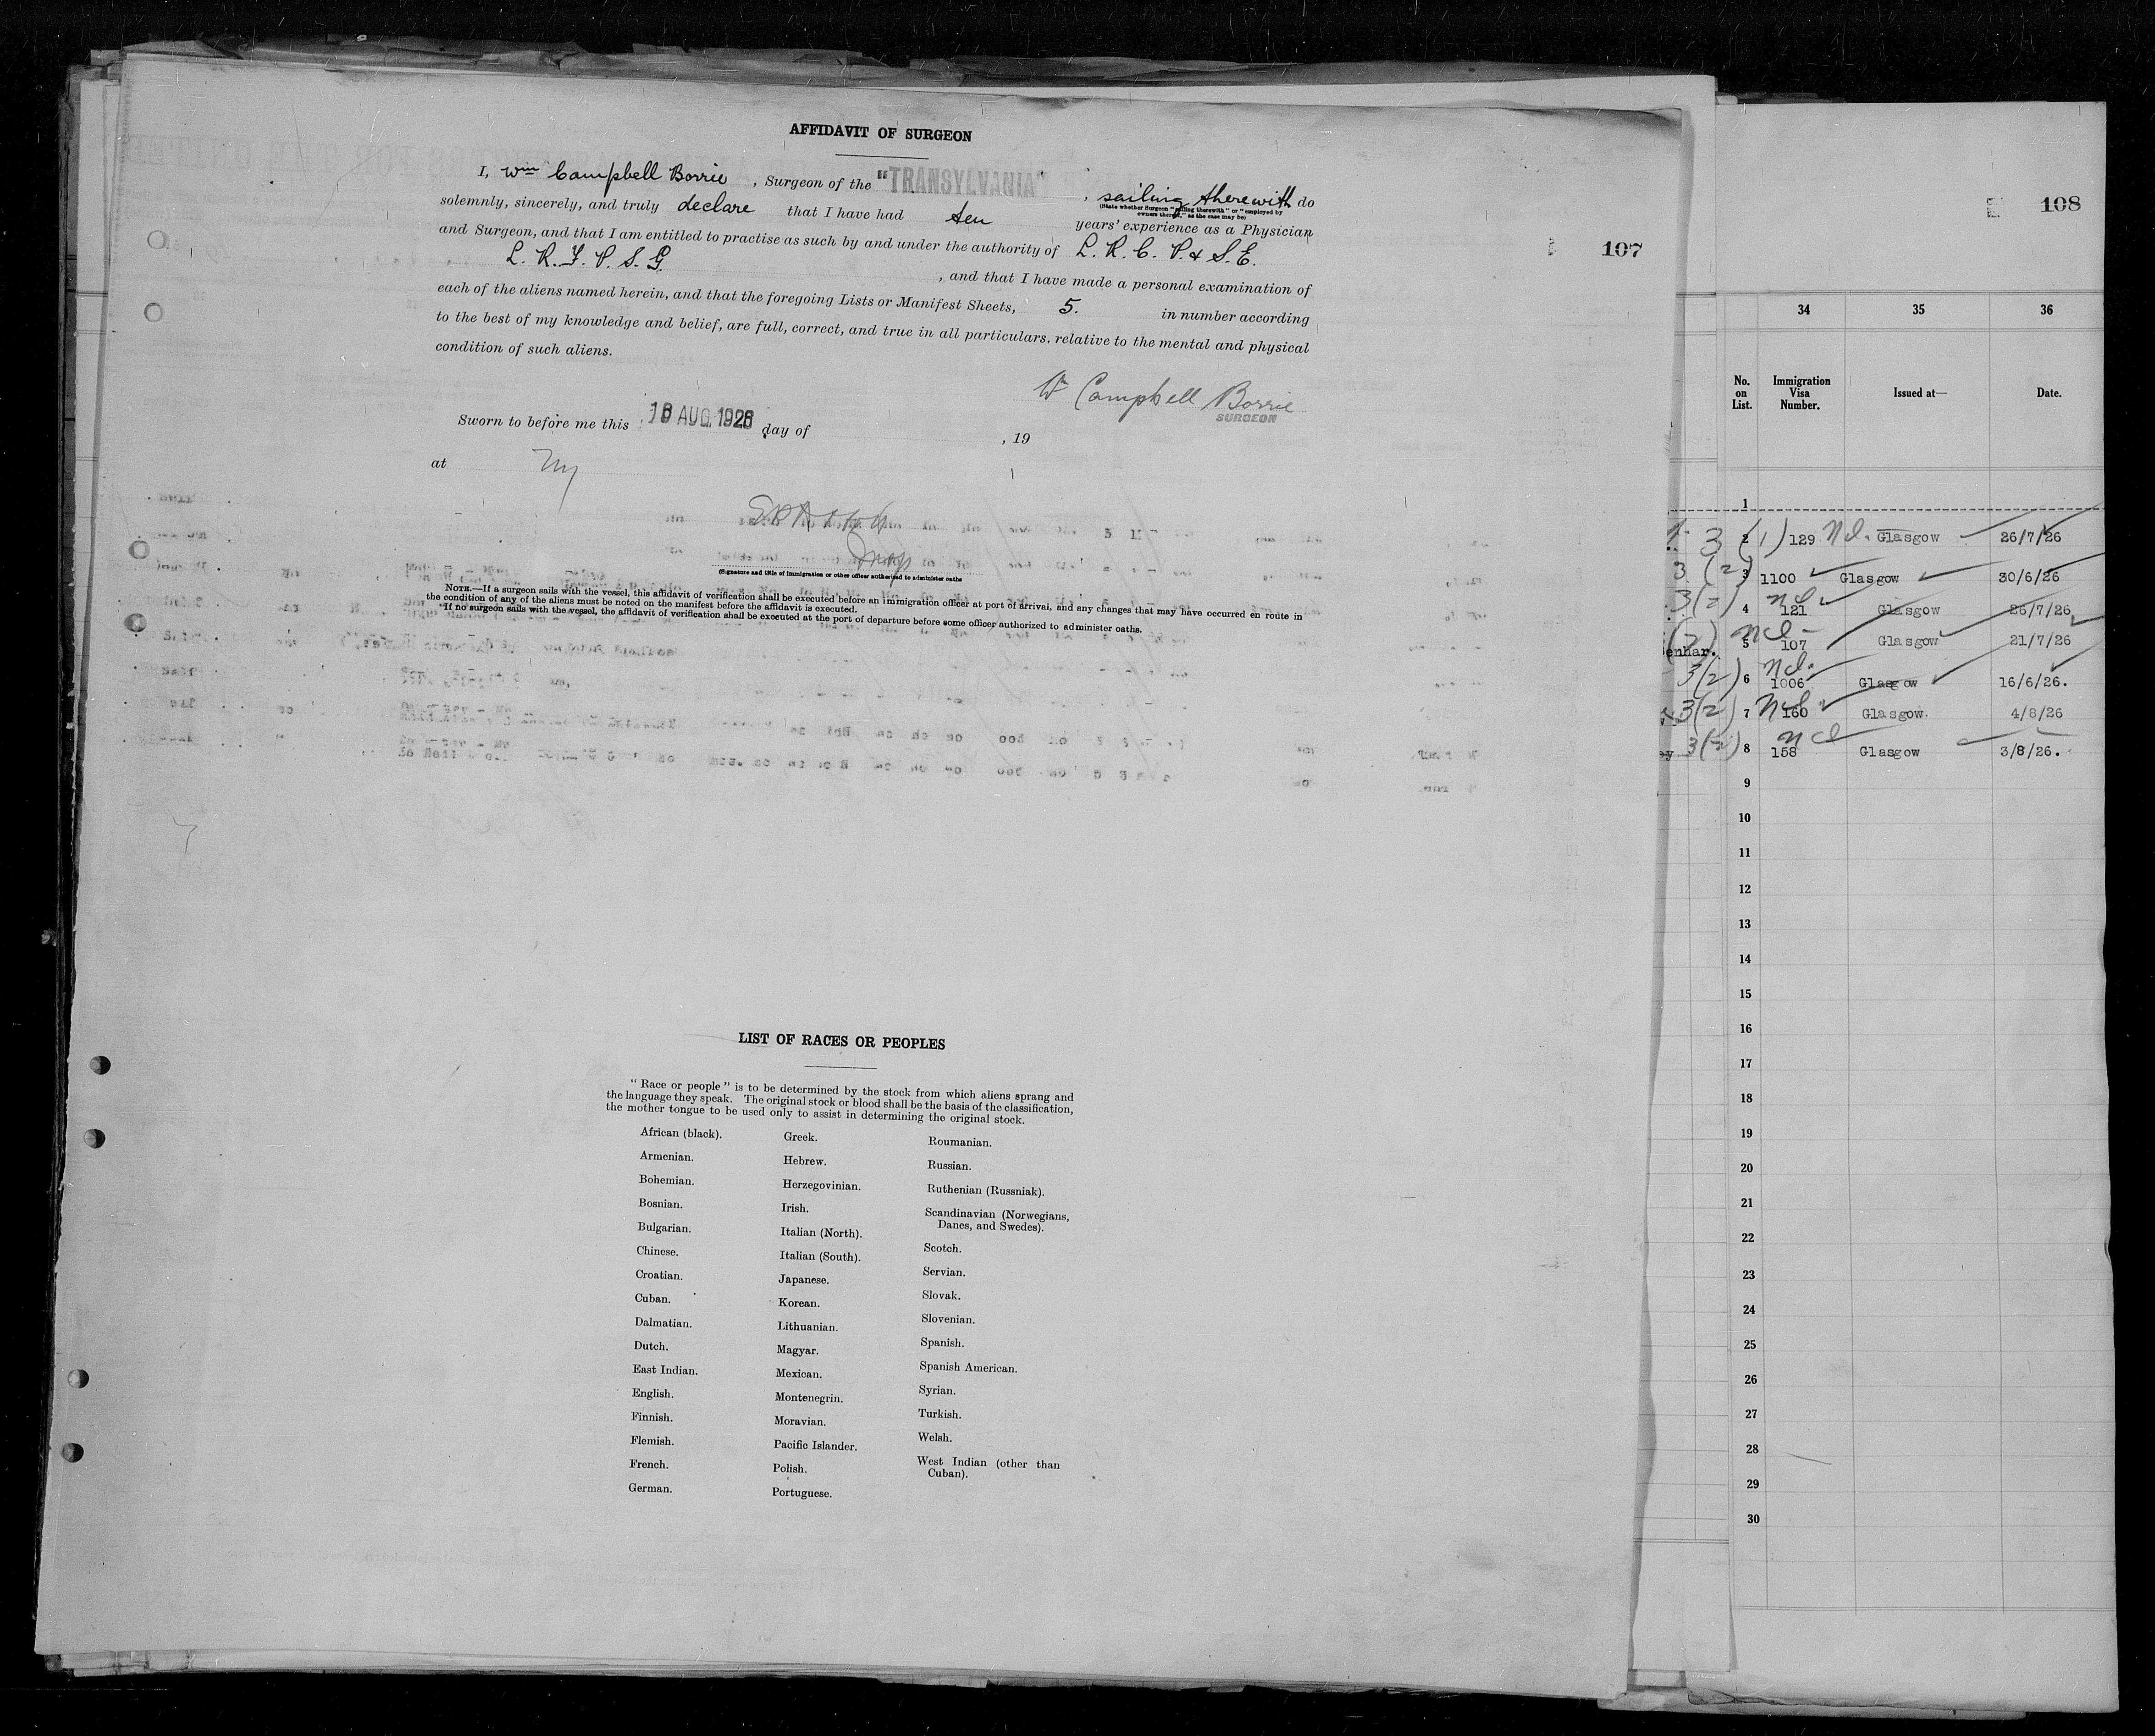 AFFIDAVIT OF SURGEON
I, Wm Campbell Borrie, Surgeon of the "TRANSYLVANIA", sailing therewith do
(State whether Surgeon "sailing therewith" or "employed by
owners thereof," as the case may be)
solemnly, sincerely, and truly declare that I have had ten years' experience as a Physician
and Surgeon, and that I am entitled to practise as such by and under the authority of L. R. C. P. & S. E.
L. R. F. P. S. G. , and that I have made a personal examination of
each of the aliens named herein, and that the foregoing Lists or Manifest Sheets, 5. in number according
to the best of my knowledge and belief, are full, correct, and true in all particulars, relative to the mental and physical
condition of such aliens.
W Campbell Borrie
SURGEON
Sworn to before me this 16 AUG 1926 day of , 19
at NY
(Signature and title of immigration or other officer authorized to administer oaths
NOTE.—If a surgeon sails with the vessel, this affidavit of verification shall be executed before an immigration officer at port of arrival, and any changes that may have occurred en route in
the condition of any of the aliens must be noted on the manifest before the affidavit is executed.
If no surgeon sails with the vessel, the affidavit of verification shall be executed at the port of departure before some officer authorized to administer oaths.
LIST OF RACES OR PEOPLES
"Race or people" is to be determined by the stock from which aliens sprang and
the language they speak. The original stock or blood shall be the basis of the classification,
the mother tongue to be used only to assist in determining the original stock.
African (black).
Armenian.
Bohemian.
Bosnian.
Bulgarian.
Chinese.
Croatian.
Cuban.
Dalmatian.
Dutch.
East Indian.
English.
Finnish.
Flemish.
French.
German.
Greek.
Hebrew.
Herzegovinian.
Irish.
Italian (North).
Italian (South).
Japanese.
Korean.
Lithuanian.
Magyar.
Mexican.
Montenegrin.
Moravian.
Pacific Islander.
Polish.
Portuguese.
Roumanian.
Russian.
Ruthenian (Russniak).
Scandinavian (Norwegians,
Danes, and Swedes).
Scotch.
Servian.
Slovak.
Slovenian.
Spanish.
Spanish American.
Syrian.
Turkish.
Welsh.
West Indian (other than
Cuban).
107
108
34 35 36
No. on List. Immigration Visa Number. Issued at— Date.
1
3 (1) 2 129 Glasgow 26/7/26
3 (2) 3 1100 Glasgow 30/6/26
3 (2) 4 121 Glasgow 26/7/26
enhar. (2) 5 107 Glasgow 21/7/26
3 (2) 6 1006 Glasgow 16/6/26.
3 (2) 7 160 Glasgow. 4/8/26
ey 3 (2) 8 158 Glasgow 3/8/26.
9
10
11
12
13
14
15
16
17
18
19
20
21
22
23
24
25
26
27
28
29
30